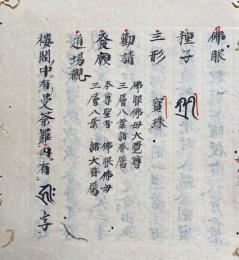 佛眼
種子
三形 寶珠
勸請 佛眼佛母大覺尊
三層八葉諸眷屬
發願 本尊聖者 佛眼佛母
三層八葉 諸大眷屬
道場觀
樓閣中有曼荼羅内有 字